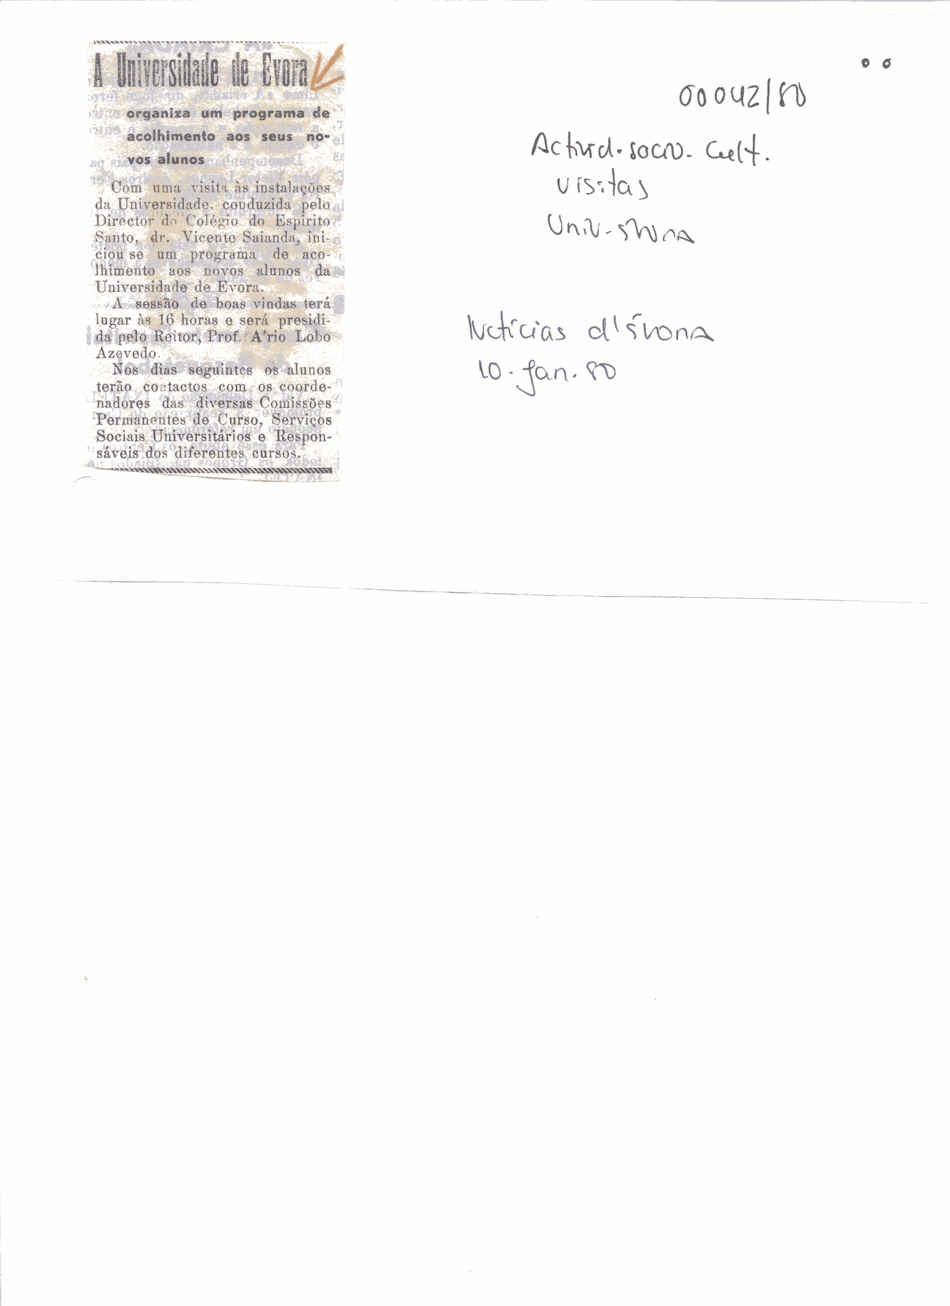 A Universidade de Evora
organiza um programa de
acolhimento aos seus no-
vos alunos
Com uma visita às instalações
da Universidade, conduzida pelo
Director do Colégio do Espírito
Santo, dr. Vicente Saianda, ini-
ciou se um programa de aco-
lhimento aos novos alunos da
Universidade de Evora.
A sessão de boas vindas terá
lugar às 16 horas e será presidi-
da pelo Reitor, Prof. A'rio Lobo
Azevedo.
Nos dias seguintes os alunos
terão contactos com os coorde-
nadores das diversas Comissões
Permanentes de Curso, Serviços
Sociais Universitários e Respon-
sáveis dos diferentes cursos.
00042/80
Activid. socio. Cult.
visitas
Univ. Évora
Notícias d'Évora
10. Jan. 80